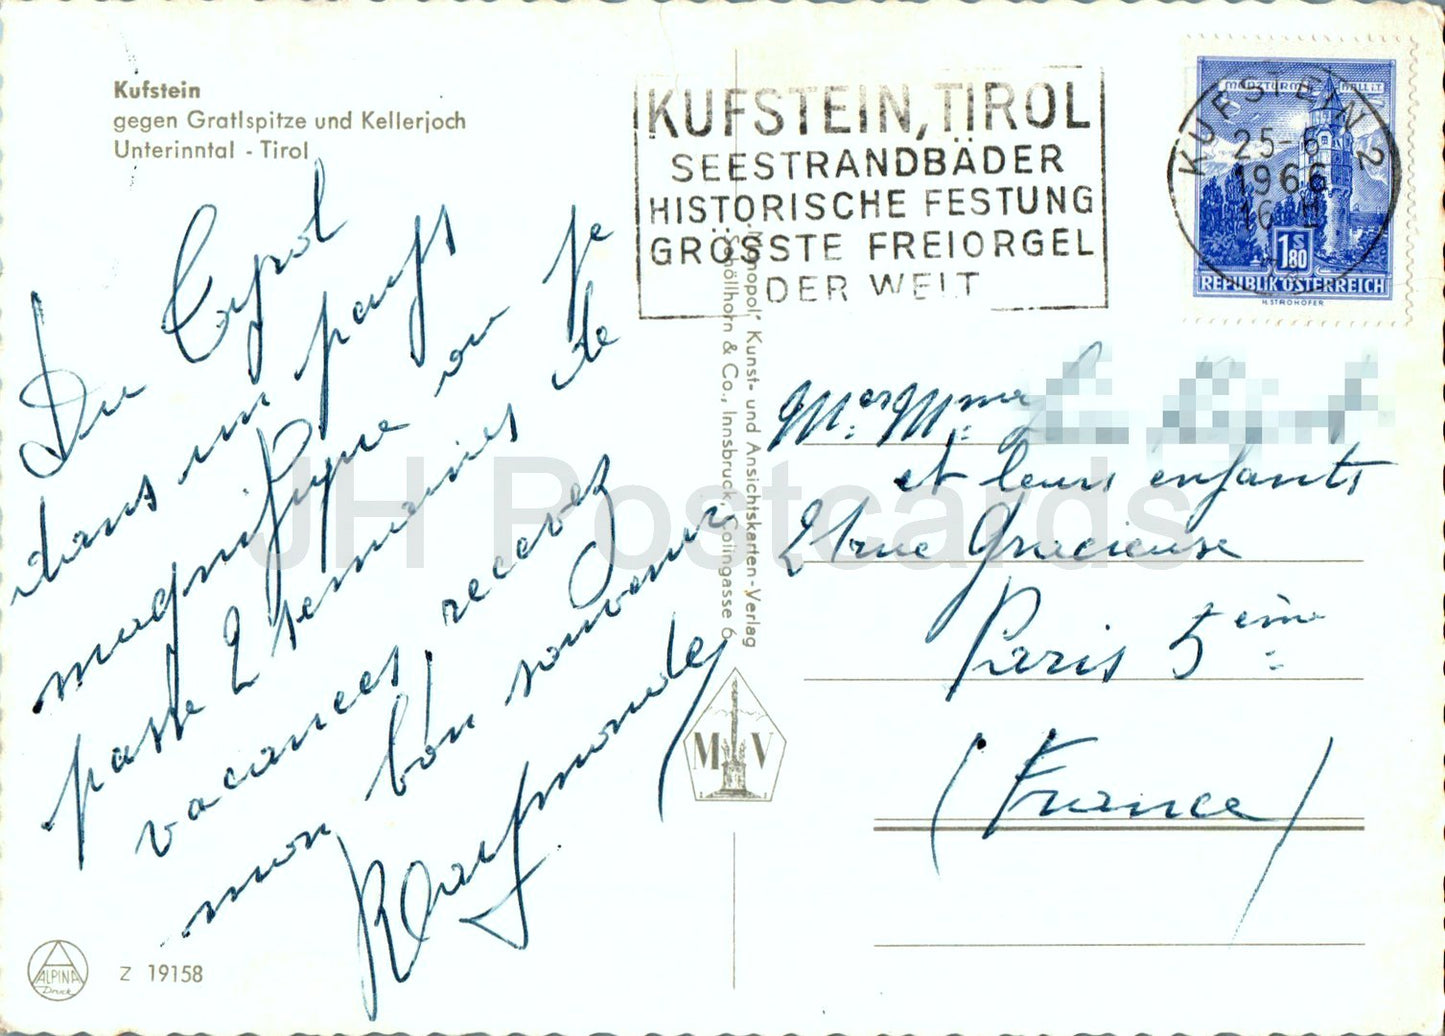 Kufstein
gegen Gratlspitze und Kellerjoch
Unterinntal - Tirol
KUFSTEIN, TIROL
SEESTRANDBÄDER
HISTORISCHE FESTUNG
GRÖSSTE FREIORGEL
DER WELT
MÜNZTURM HALL i.T.
1.80 S
REPUBLIK ÖSTERREICH
H. STROHOFER
KUFSTEIN 2
25-6
1966
16 H
Du Tyrol
dans un pays
magnifique où je
passe 2 semaines de
vacances, recevez
mon bon souvenir
Raymonde
Mr Mme
et leurs enfants
rue Gracieuse
Paris 5ème
(France)
"Monopol" Kunst- und Ansichtskarten-Verlag
Schöllhorn & Co., Innsbruck, Colingasse 6
M V
ALPINA
Druck
Z 19158
JH Postcards